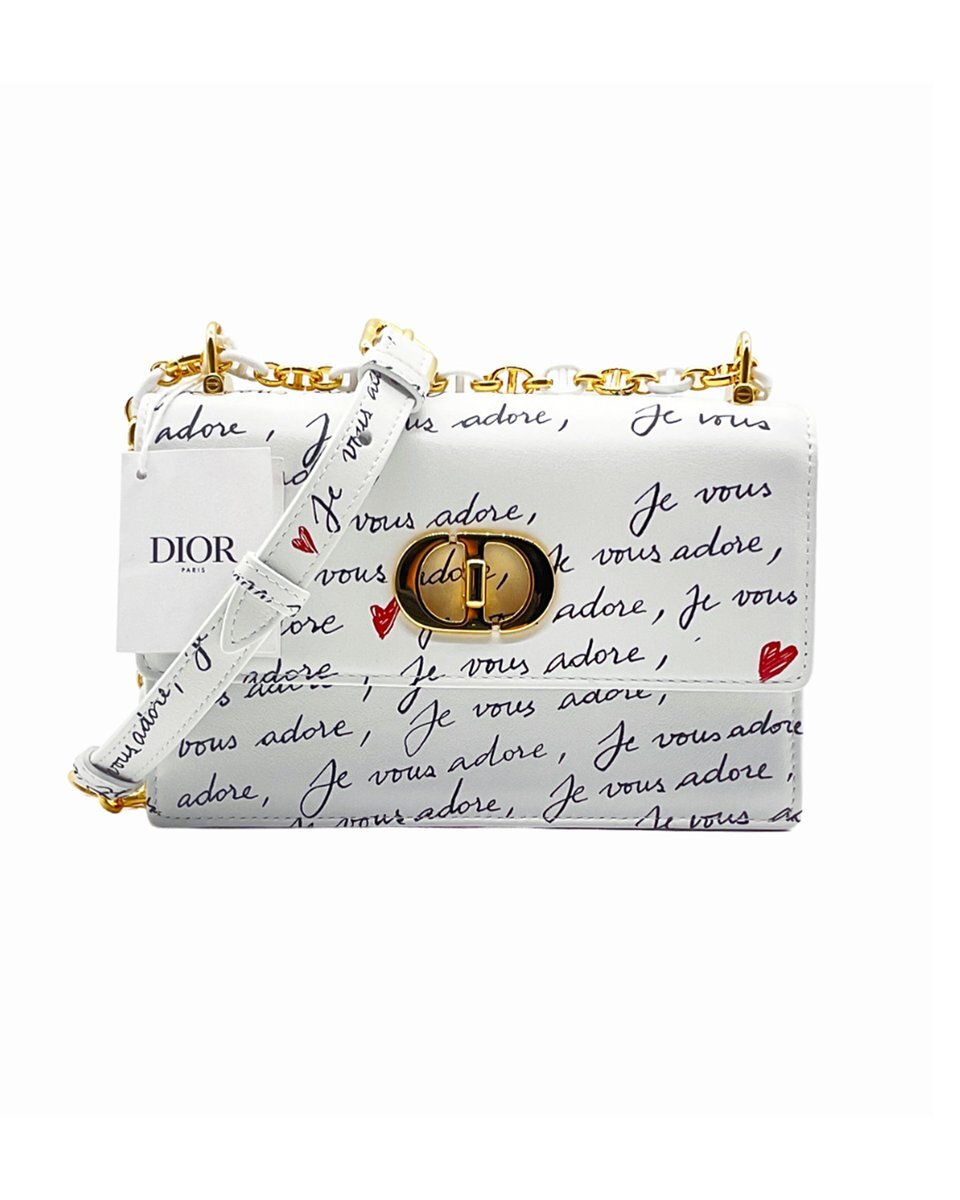 adore, J us adore, Je vous
Je vous
vous adore,
Je vous
Je
DIOR
PARIS
vous ado e, vous adore,
ore
adore, Je vous
adore, Je vous adore,
vous adore, Je vous adore, Je vous adore
adore, Je vous adore, Je vous adore,
Je vous adore, Je vous ad
Je
vous adore,